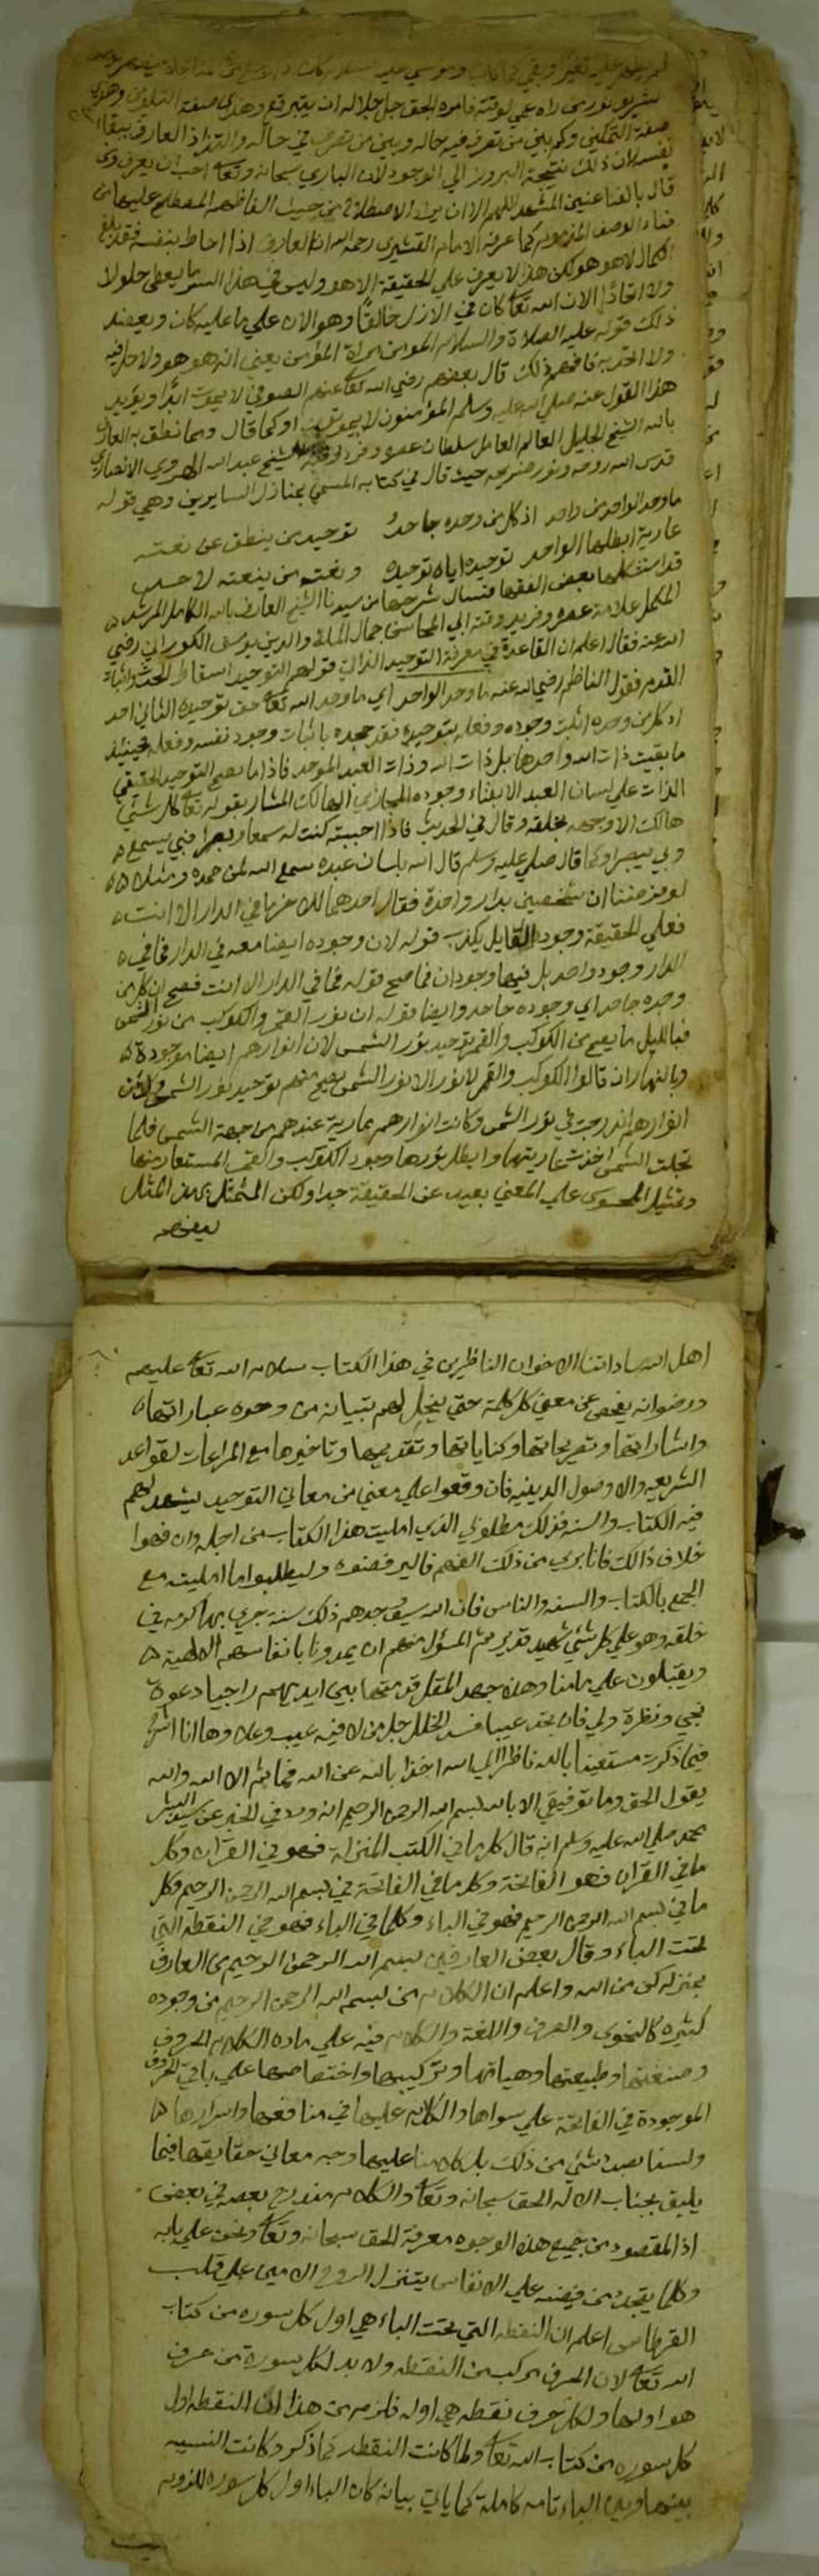 لم يظهر عليه تغير وبقي كما كان وموسى عليه السلام كان
نوره من راه عمي لوقته فامره الحق جل جلاله ان يتبرقع وهذي صفة التلوين وهذي
صفة التمكين وكم بين من تصرف فيه حاله وبين من تصرف في حاله والتذاذ العارف ببقاء
نفسه لان ذلك نتيجة البروز الي الوجود لان الباري سبحانه وتعا احب ان يعرف ومن
قال بالفنا عنين المشهد اللهم الا ان يراد الاصطلاح من حيث الفاظهم المصطلح عليها من
فناء الوصف المذموم كما عرفه الامام القشيري رحمه الله اذا العارف اذا احاط بنفسه فقد بلغ
الكمال لاهو هو لكن هذا لا يعرف علي الحقيقة الا هو وليس في هذا السر ما يعطي حلولا
ولا اتحادا الان الله تعا كان في الازل خالقا وهو الان علي ما عليه كان ويعضد
ذلك قوله عليه الصلاة والسلام المومن مراة المؤمن يعني انه هو هو ولا حل فيه
ولا اتحد به فافهم ذلك قال بعضهم رضي الله تعا عنهم الصوفي لا يموت ابدا ويؤيد
هذا القول عنه صلي الله عليه وسلم المؤمنون لا يموتون او كما قال وبما نطق به العارف
بالله الشيخ الجليل العالم العامل سلطان عصره وفريد وقته الشيخ عبد الله الهروي الانصاري
قدس الله روحه ونور ضريحه حيث قال في كتابه المسمي بمنازل السايرين وهي قوله
ما وحد الواحد من واحد اذ كل من وحده جاحد توحيد من ينطق عن نعته
عارية ابطلها الواحد توحيده اياه توحيده ونعت من ينعته لاحد
قد استشكلها بعض الفقها فسال شرحها من سيدنا الشيخ العارف بالله الكامل المرشد
المكمل علامة عصره وفريد وقته ابي المحاسن جمال الملة والدين يوسف الكوراني رضي
الله عنه فقال اعلم ان القاعدة في معرفة التوحيد الذاتي قولهم التوحيد اسقاط الحدث واثبات
القدم فقول الناظم رضي الله عنه ما وحد الواحد اي ما وحد الله تعا حق توحيده الثاني احد
اذ كل من وحده اثبت وجوده وفعله بتوحيده فقد جحده باثبات وجود نفسه وفعله فحينئذ
ما بقيت ذات الله واحدها بل ذات الله وذات العبد الموحد فاذا ما يصح التوحيد الحقيقي
الذات علي لسان العبد الا بفناء وجوده المجازي الهالك المشار بقوله تعا كل شئي
هالك الا وجهه بخلقه وقال في الحديث فاذا احببته كنت له سمعا وبصرا فبي يسمع
وبي يبصر اوكما قال صلي عليه وسلم قال الله بلسان عبده سمع الله لمن حمده ومثله
لو فرضنا ان شخصين بدار واحدة فقال احدهما للاخر ما في الدار الا انت
فعلي الحقيقة وجود القايل يكذب قوله لان وجوده ايضا معه في الدار فما في
الدار وجود واحد بل فيها وجودان فما صح قوله فما في الدار الا انت فصح ان كل من
وحده جاحد اي وجوده جاحد وايضا قوله ان نور القمر والكوكب من نور الشمس
فبالليل ما يصح من الكوكب والقمر توحيد نور الشمس لان انوارهم ايضا موجودة
وبالنهار ان قالوا الكوكب والقمر لا نور الا نور الشمس يصح منهم توحيد نور الشمس ولان
انوارهم اندرجت في نور الشمس وكانت انوارهم عارية عندهم من اجهة الشمس فلما
تجلت الشمس اخذت عاريتها وابطل نورها وجود الكوكب والقمر المستعار منها
وتمثيل المحسوس علي المعني بعيد عن الحقيقة جدا ولكن المتمثل يمثل المثل
ليفهم
اهل الله ساداتنا الاخوان الناظرين في هذا الكتاب سلام الله تعا عليهم
ورضوانه يفحص عن معني كل كلمة حتي ينجل لهم بتبيانه من وجوه عباراتها
واشاراتها وتصريحاتها وكناياتها وتقديمها وتاخيرها مع المراعات لقواعد
الشريعه والاوصول الدينيه فان وقعوا علي معني من معاني التوحيد يشهد لهم
فيه الكتاب والسنه فذلك مطلوبي الذي امليت هذا الكتاب من اجله وان فهموا
خلاف ذالك فانا بري من ذلك الفهم فاليرفضوه وليطلبوا ما امليته مع
الجمع بالكتاب والسنه والناس فان الله سيوجدهم ذلك سنه جري بها كرمه في
خلقه وهو علي كل شئي شهيد قدير ثم المسؤل منهم ان يمدونا بانفاسهم الالهية
ويقبلون علي مامنا وهذه جهد المقل قدمتها بين ايديهم راجيا دعوة
نجي ونظرة ولي فان تجد عيبا فسد الخلل جل من لا فيه عيب وعلا وها انا اشرع
فيما ذكرت مستعينا بالله ناظرا الي الله اخذا بالله عن الله فما ثم الا الله والله
يقول الحق وما توفيقي الا بالله بسم الله الرحمن الرحيم انه ورد في الخبر عن سيد البشر
محمد صلي الله عليه وسلم انه قال كل ما في الكتب المنزله فهو في القرآن وكل
ما في القرآن فهو الفاتحة وكل ما في الفاتحة في بسم الله الرحمن الرحيم وكل
ما في بسم الله الرحمن الرحيم فهو في الباء وكلما في الباء فهو في النقطه التي
تحت الباء وقال بعض العارفين بسم الله الرحمن الرحيم من العارف
بمنزله كن من الله واعلم ان الكلام من بسم الله الرحمن الرحيم من وجوه
كثيره كالنحوي والصرف واللغة والكلام فيه علي ماده الكلام الحروف
وصنعتها وطبيعتها وهياتها وتركيبها واختصاصها علي باقي الحروف
الموجودة في الفاتحة علي سواها والكلام عليها في منافعها واسرارها
ولسنا بصدد شئي من ذلك بل كلامنا عليها وجه معاني حقايقها فيما
يليق بجناب الاله الحق سبحانه وتعا والكلام مندرج بعضه في بعض
اذ المقصود من جميع هذه الوجوه معرفة الحق سبحانه وتعا ونحن علي بابه
وكلما يتجدد من فيضه علي الانفاس يتنزل الروح الامين علي قلب
القرطاس اعلم ان النقطه التي تحت الباء هي اول كل سوره من كتاب
الله تعا لان الحرف مركب من النقطه ولا بد لكل سورة من حرف
هو اولها ولكل حرف نقطه هي اوله فلزم من هذا ان النقطه اول
كل سوره من كتاب الله تعا ولما كانت النقطه كما ذكر وكانت النسبه
بينها وبين الباء تامه كاملة كما ياتي بيانه كان الباء اول كل سوره للزومه